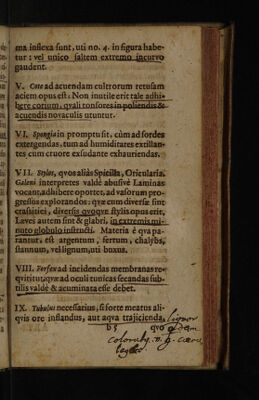 ma inflexa sunt, uti no. 4. in figura habe-
tur: vel unico saltem extremo incurvo
gaudent.
V. Cote ad acuendam cultrorum retusam
aciem opus est. Non inutile erit tale adhi-
bere corium, quali tonsores in poliendis &
acuendis novaculis utuntur.
VI. Spongia in promptu sit, cùm ad sordes
extergendas, tum ad humiditates exstillan-
tes cum cruore exsudante exhauriendas.
VII. Stylos, qvos aliàs Spicilla, Oricularia,
Galeni interpretes valdè abusivè Laminas
vocant, adhibere oportet, ad vasorum pro-
gressus explorandos: qvæ cum diversæ sint
crassitiei, diversis qvoqve stylis opus erit.
Læves autem sint & glabri, in extremis mi-
nuto globulo instructi. Materia è qva pa-
rantur, est argentum, ferrum, chalybs,
stannum, vel lignum, uti buxus.
VIII. Forfex ad incidendas membranas re-
qviritur, qvæ ad oculi tunicas secandas sub-
tilis valdè & acuminata esse debet.
IX. Tubulus necessarius, si forte meatus ali-
qvis ore inflandus, aut aqva trajicienda,
b 5 qvo
liquor